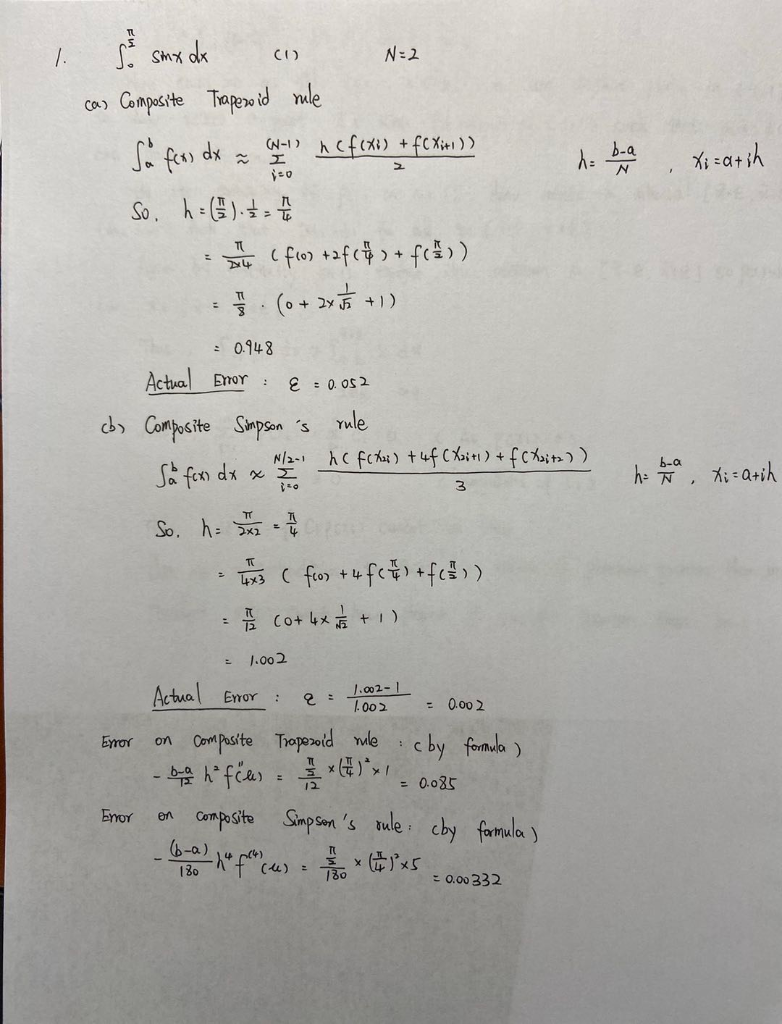 1. ∫₀^(π/2) sinx dx (1) N=2
(a) Composite Trapezoid rule
∫ₐᵇ f(x) dx ≈ Σ_(i=0)^(N-1) h(f(xi) + f(xi+1)) / 2 h = (b-a)/N , xi = a+ih
So, h = (π/2)·1/2 = π/4
= π/(2×4) (f(0) + 2f(π/4) + f(π/2))
= π/8 · (0 + 2×1/√2 + 1)
= 0.948
Actual Error : ε = 0.052
(b) Composite Simpson's rule
∫ₐᵇ f(x) dx ≈ Σ_(i=0)^(N/2-1) h(f(x2i) + 4f(x2i+1) + f(x2i+2)) / 3 h = (b-a)/N , xi = a+ih
So, h = π/(2×2) = π/4
= π/(4×3) (f(0) + 4f(π/4) + f(π/2))
= π/12 (0 + 4×1/√2 + 1)
= 1.002
Actual Error : ε = (1.002-1)/1.002 = 0.002
Error on composite Trapezoid rule : (by formula)
- (b-a)/12 h² f''(u) = (π/2)/12 × (π/4)² × 1 = 0.085
Error on composite Simpson's rule : (by formula)
- (b-a)/180 h⁴ f⁽⁴⁾(u) = (π/2)/180 × (π/4)² × 5 = 0.00332